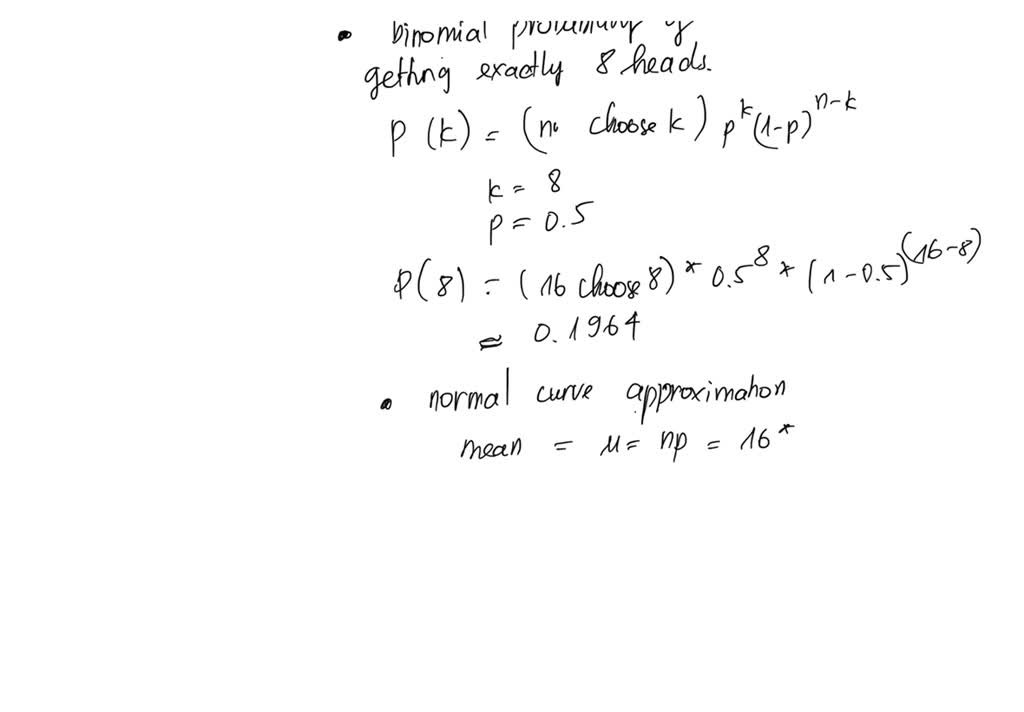 • binomial probability of
getting exactly 8 heads.
P (k) = (n choose k) p^k (1-p)^n-k
k = 8
p = 0.5
P(8) = (16 choose 8) * 0.5^8 * (1-0.5)^(16-8)
≈ 0.1964
• normal curve approximation
mean = μ = np = 16*